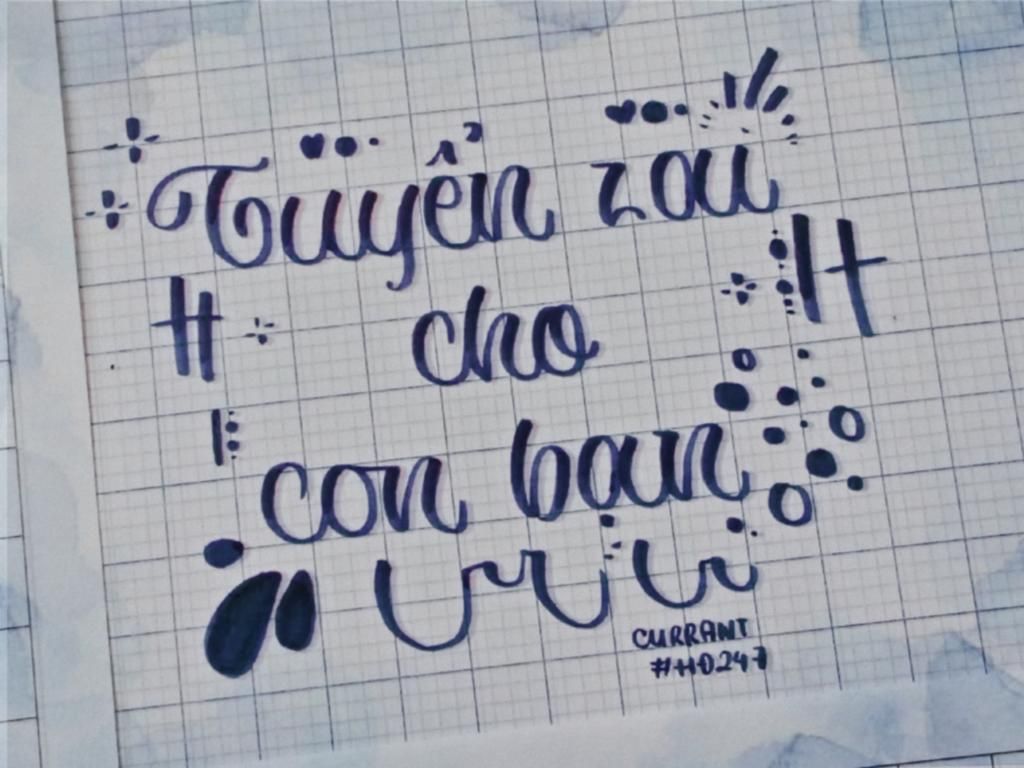 Tuyển zai
cho
con bạn
CURRANT
#H0247